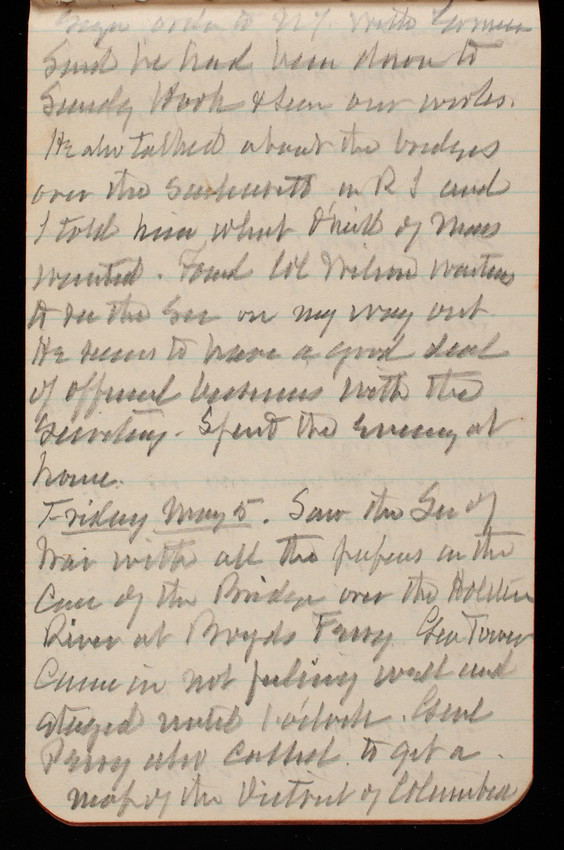 order to N.Y. with
Said he had been down to
Sandy Hook & seen our works.
He also talked about the bridges
over the in R I and
I told him what O'Neill of Mass
wanted. Found Col Wilson waiting
to see the Sec on my way out.
He seems to have a good deal
of official business with the
Secretary. Spent the Evening at
home.
Friday May 5. Saw the Sec of
War with all the papers in the
Case of the Bridge over the Holston
River at Boyds Ferry. Geo Tower
Came in not feeling well and
stayed until 1 o'clock. Genl
Perry also called to get a
map of the District of Columbia